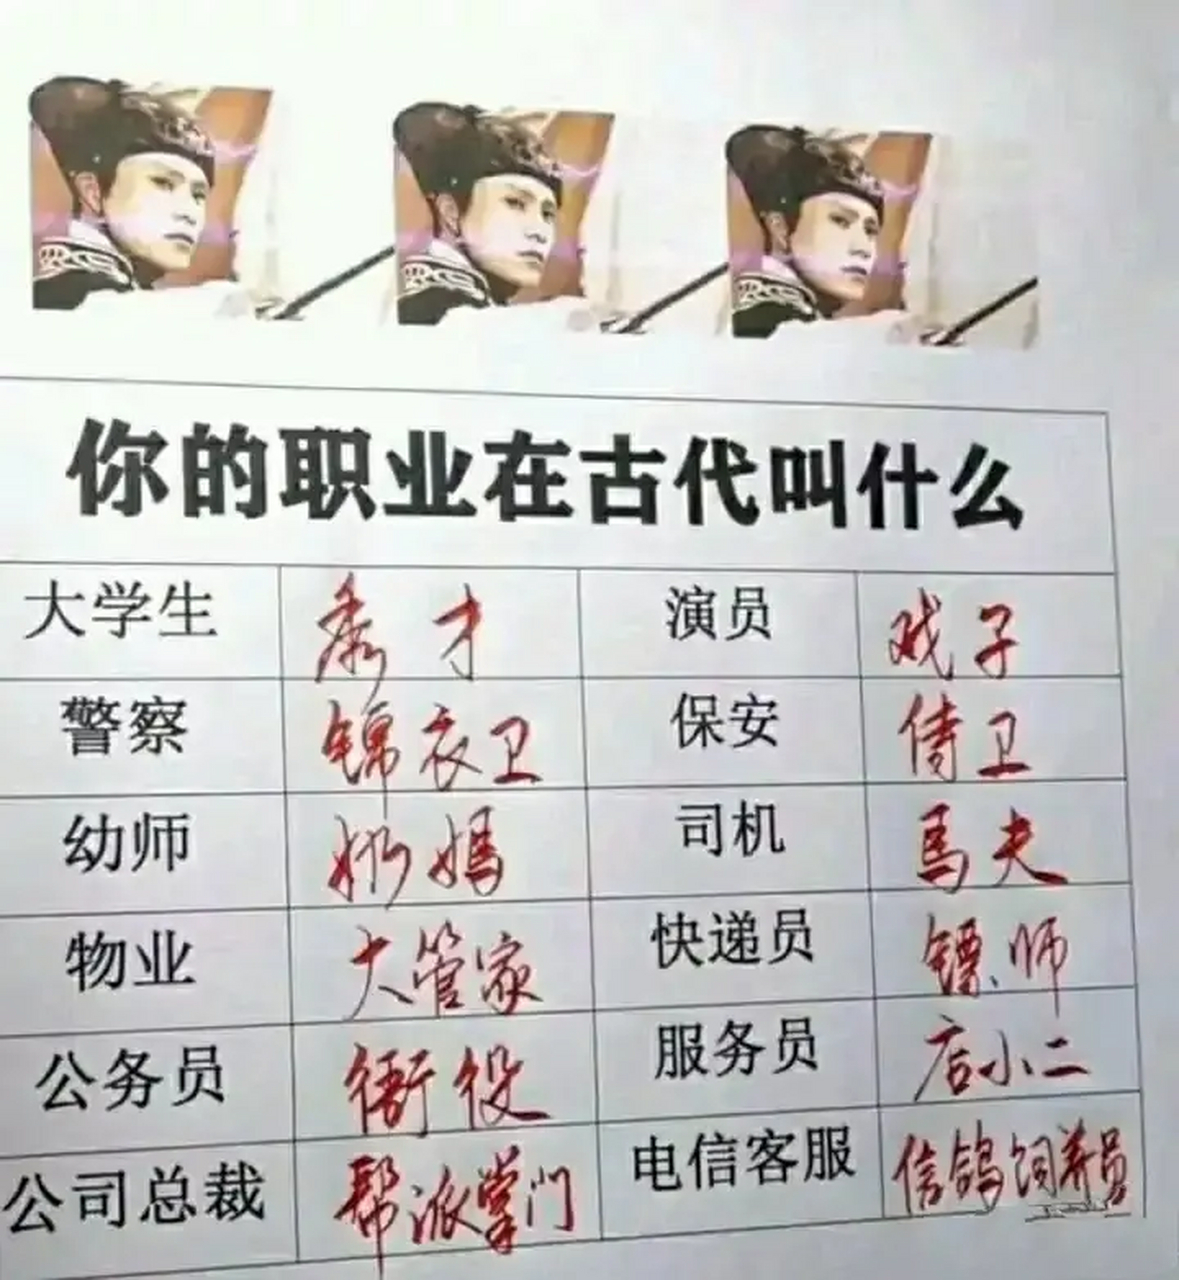 你的职业在古代叫什么
大学生 秀才 演员 戏子
警察 锦衣卫 保安 侍卫
幼师 奶妈 司机 馬夫
物业 大管家 快递员 镖师
公务员 衙役 服务员 店小二
公司总裁 帮派掌门 电信客服 信鸽饲养员